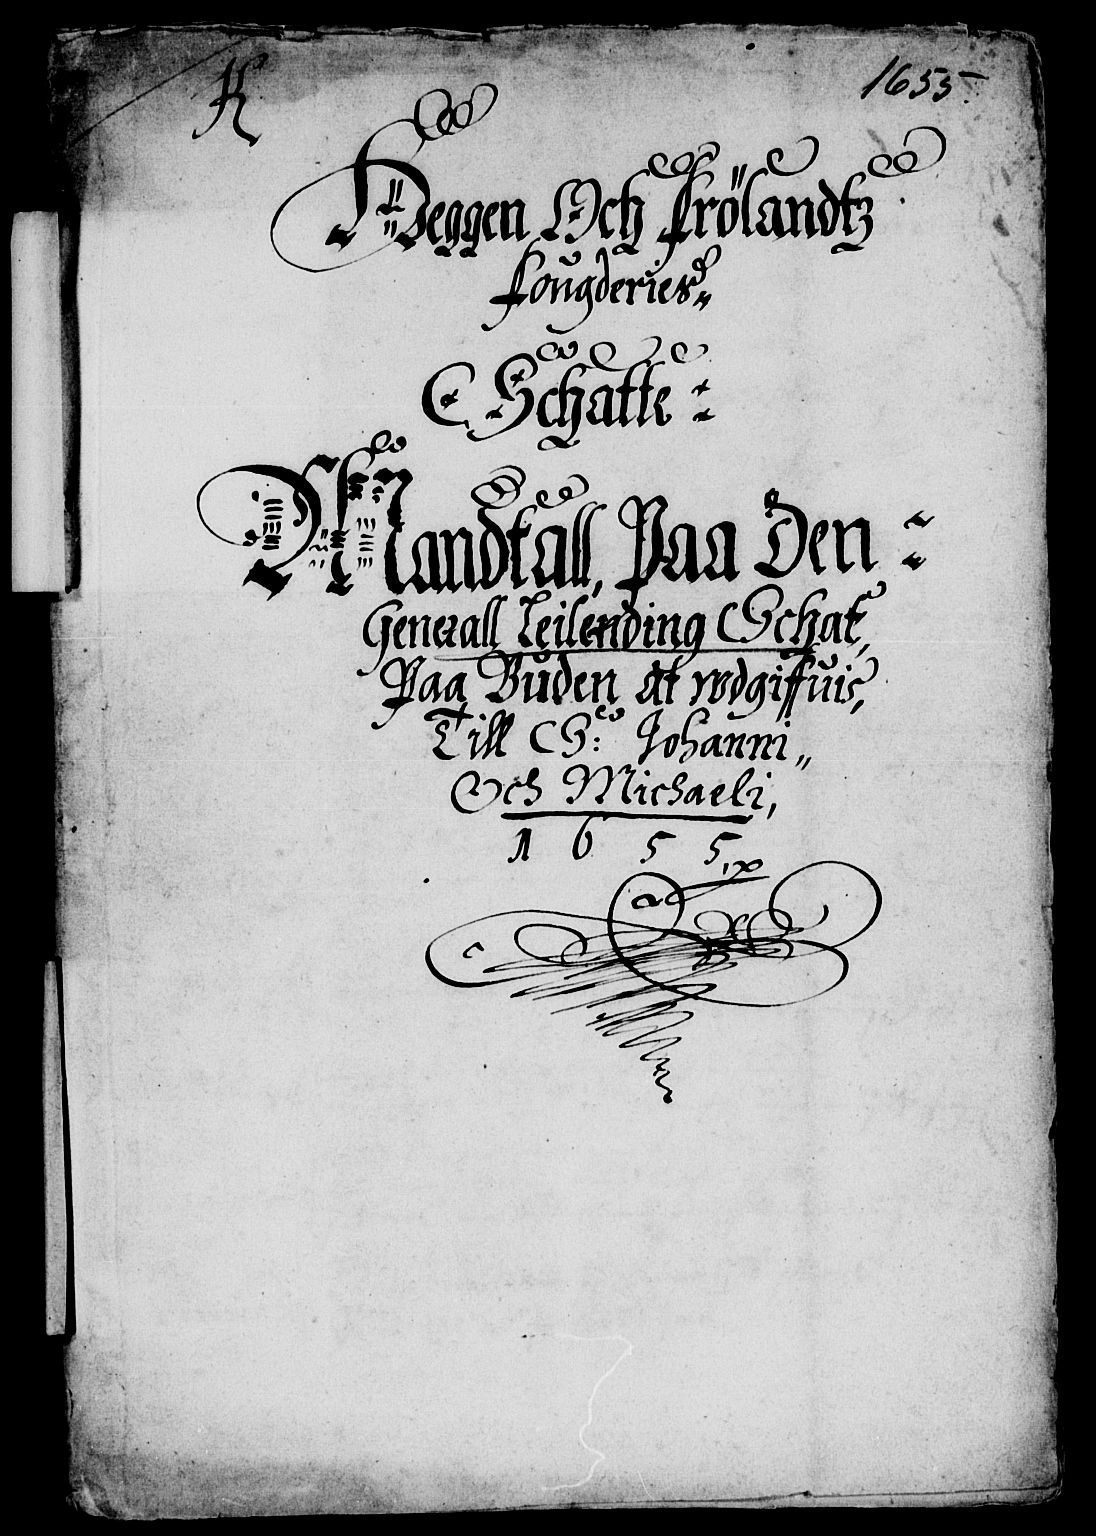 K
1655.
Heggen Och Frölandtz
fougderies
Schatte
Mandtall, Paa Den
Generall Leilending Schat,
Paa Buden at wdgiffuis,
Till S: Johanni
Och Michaeli,
1655